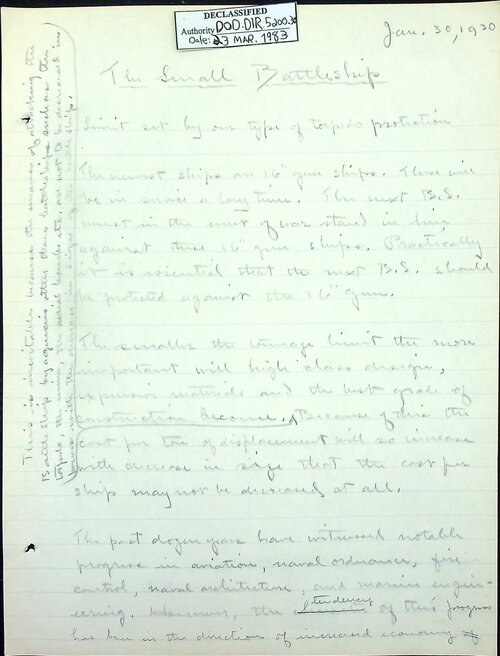 DECLASSIFIED
Authority DOD.DIR.5200.30
Date: 23 MAR. 1983
Jan. 30, 1930
The Small Battleship
Limit set by our type of torpedo protection
The newest ships are 16" gun ships. These will
be in service a long time. The next B.S.
must in the event of war stand in line
against these 16" gun ships. Practically
it is essential that the next B.S. should
be protected against the 16" gun.
The smaller the tonnage limit the more
important will high class design,
expensive materials and the best grade of
construction become. Because of this the
cost per ton of displacement will so increase
with decrease in size that the cost per
ship may not be decreased at all.
This is inevitable because the means of attacking the
Battleship by agencies other than battleships such as the
torpedo, the mine, the aerial bomb etc. are not to be decreased in
with the decrease in size of the battleship.
The past dozen years have witnessed notable
progress in aviation, naval ordnance, fire
control, naval architecture, and marine engin-
eering. However, the tendency of this progress
has been in the direction of increased economy of